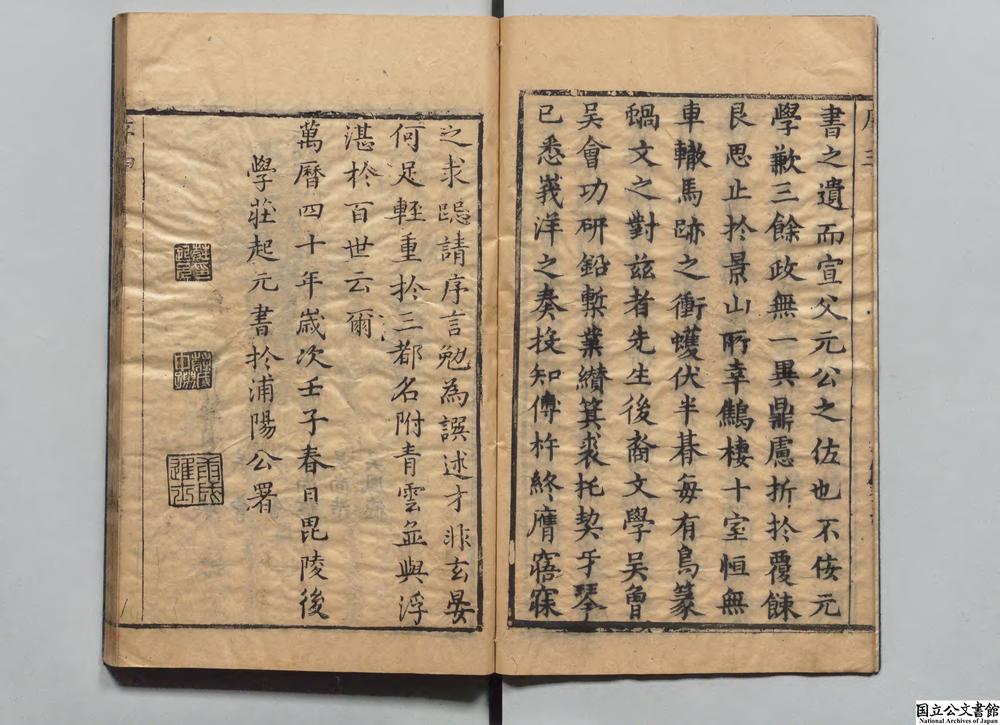 書之遺而宣父元公之佐也不佞元
學歉三餘政無一異鼎慮折於覆餗
艮思止於景山所幸鷦棲十室恒無
車轍馬跡之衝蠖伏半碁每有鳥篆
蝸文之對兹者先生後裔文學吳曾
吳會功研鉛槧業纘箕裘托契牙琴
已悉峩洋之奏投知傅杵終膺寤寐
之求跽請序言勉為譔述才非玄晏
何足輕重於三都名附青雲並與浮
湛於百世云爾
萬曆四十年歲次壬子春日毘陵後
學莊起元書於浦陽公署
国立公文書館
National Archives of Japan